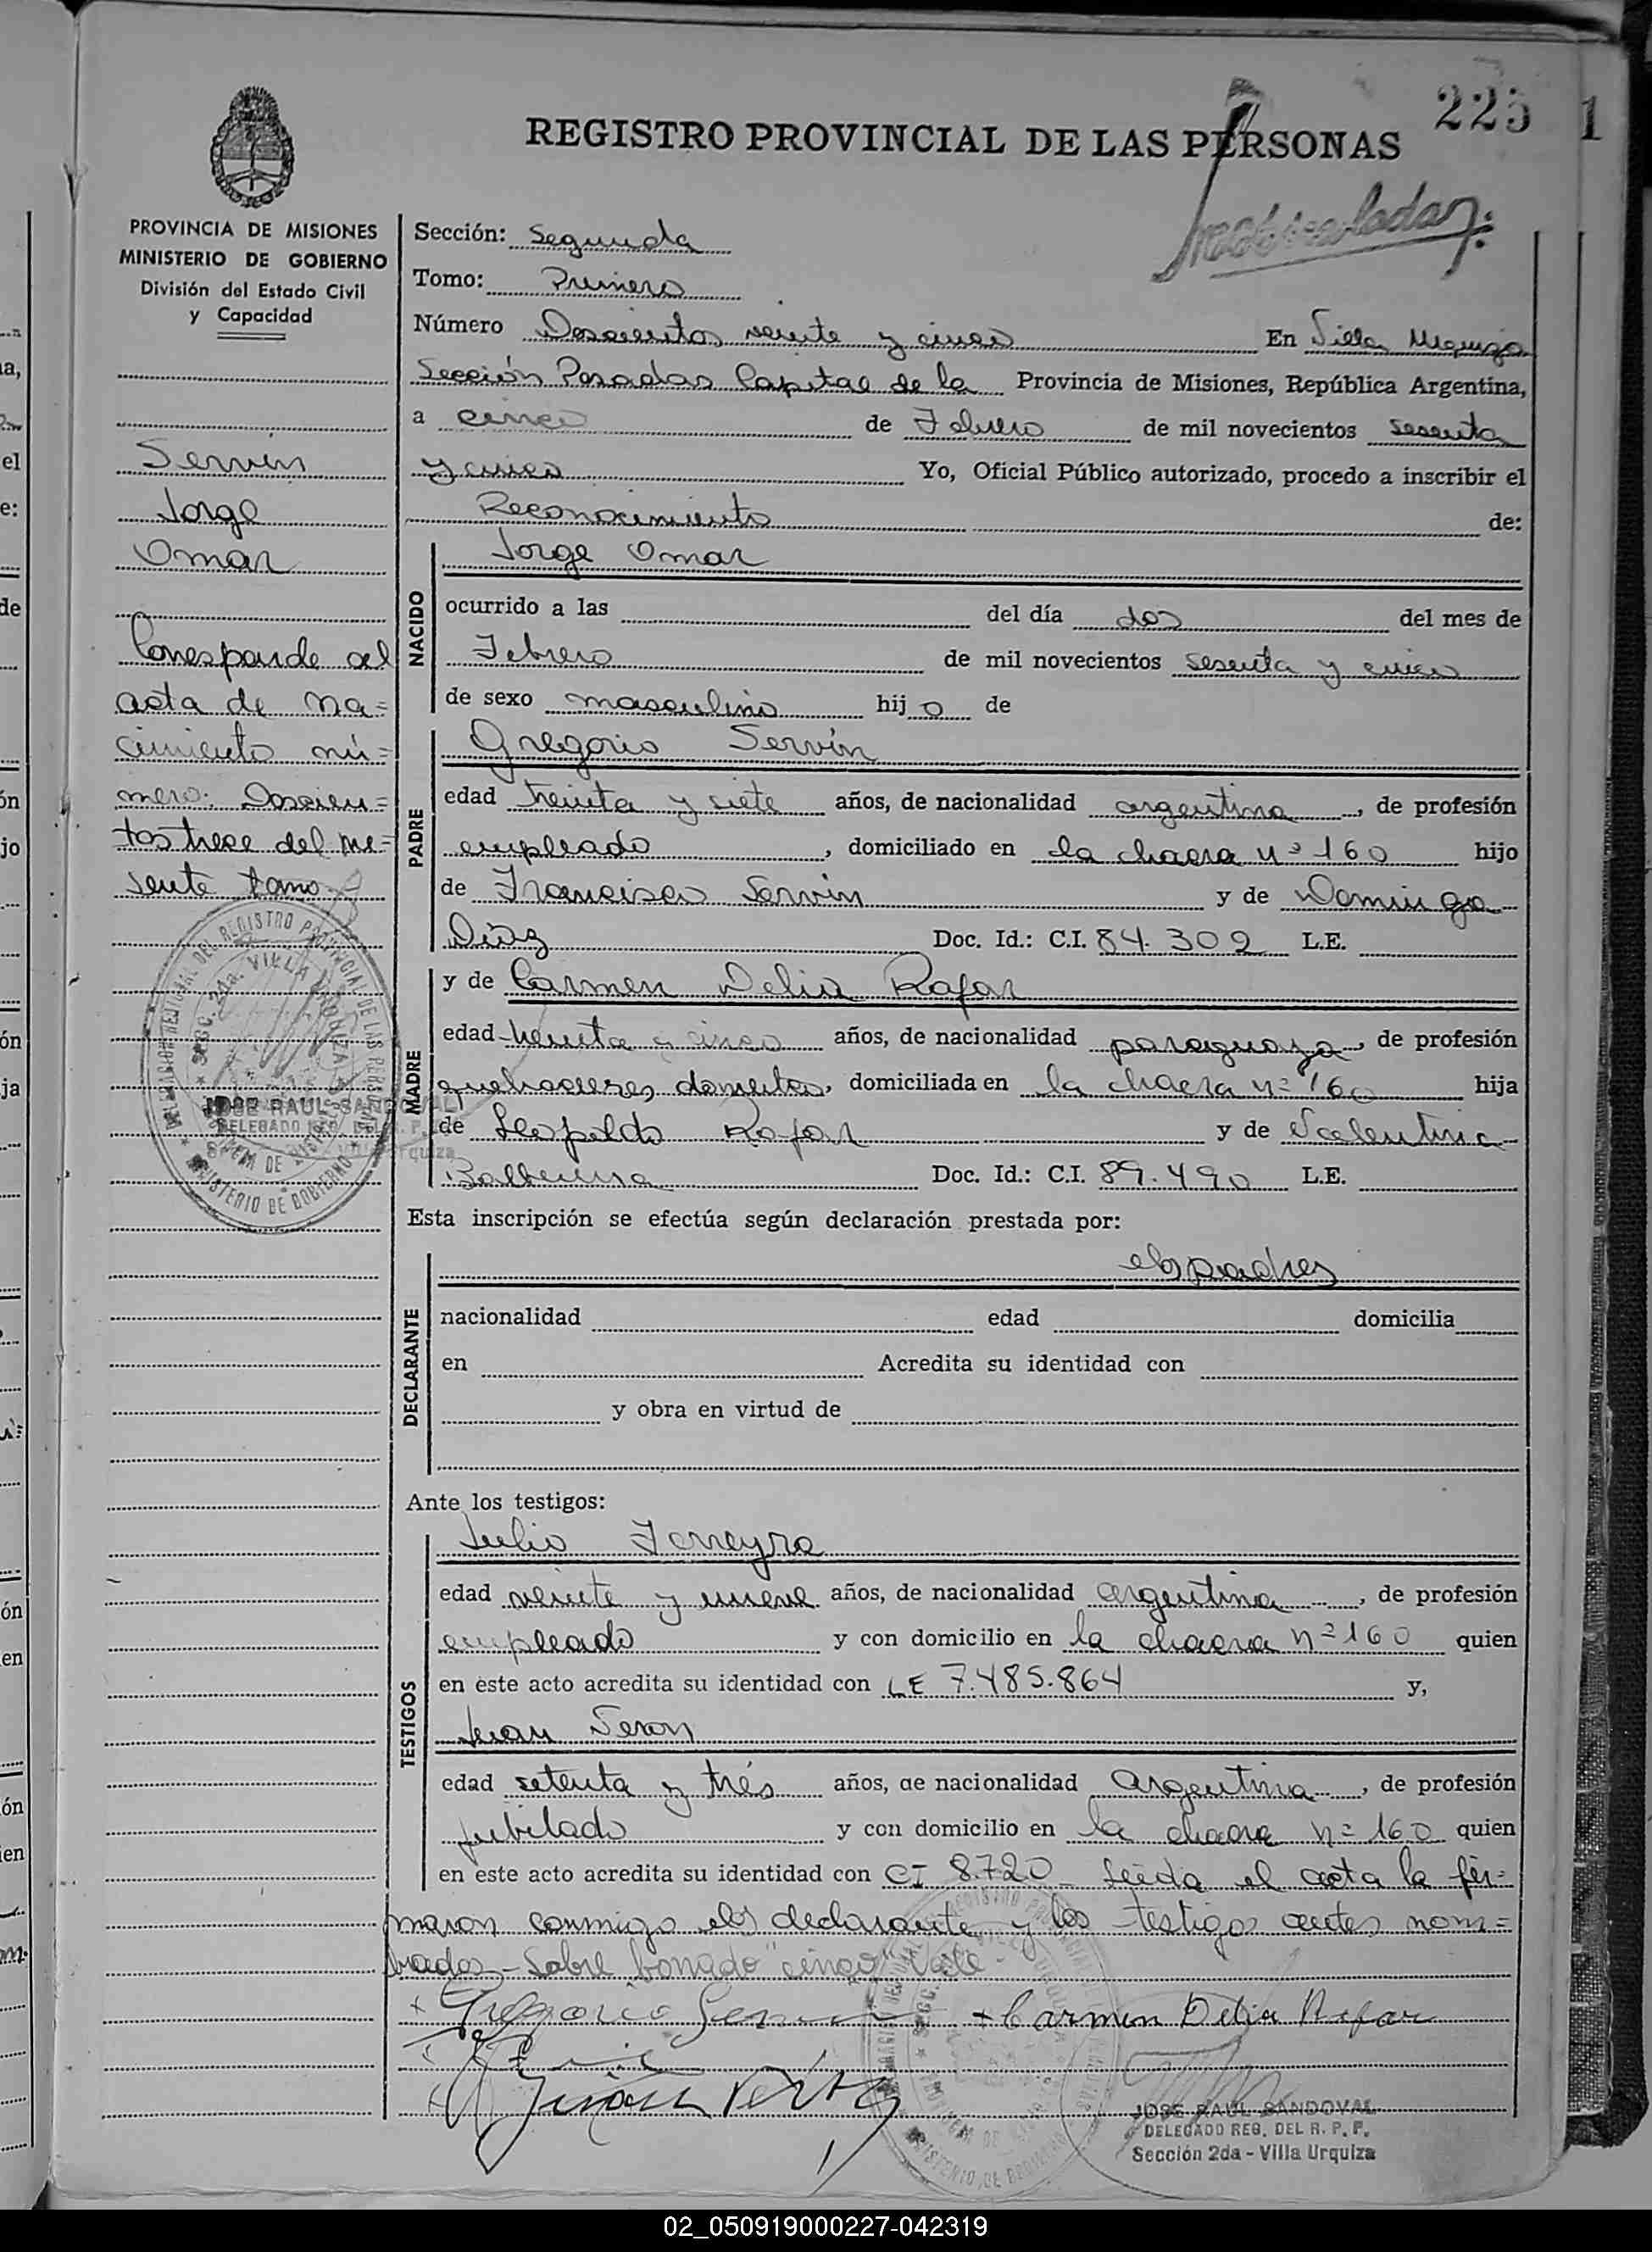 225 1
REGISTRO PROVINCIAL DE LAS PERSONAS
PROVINCIA DE MISIONES
MINISTERIO DE GOBIERNO
División del Estado Civil
y Capacidad
Servin
Jorge
Omar
Corresponde al
acta de na=
cimiento nú=
mero: Doscien=
tos trece del pre=
sente tomo
JOSE RAUL SANDOVAL
Sección: Segunda
Tomo: Primero
Número Doscientos veinte y cinco En Villa Urquiza
Sección Posadas Capital de la Provincia de Misiones, República Argentina,
a cinco de Febrero de mil novecientos sesenta
y cinco Yo, Oficial Público autorizado, procedo a inscribir el
Reconocimiento de:
NACIDO
Jorge Omar
ocurrido a las del día dos del mes de
Febrero de mil novecientos sesenta y cinco
de sexo masculino hijo de
PADRE
Gregorio Servín
edad treinta y siete años, de nacionalidad argentina, de profesión
empleado, domiciliado en la chacra nº 160 hijo
de Francisco Servín y de Dominga
Díaz Doc. Id.: C.I. 84.302 L.E.
MADRE
y de Carmen Delia Rafar
edad treinta y cinco años, de nacionalidad paraguaya, de profesión
quehaceres domestico, domiciliada en la chacra nº 160 hija
de Leopoldo Rafar y de Valentina
Balbuena Doc. Id.: C.I. 89.490 L.E.
Esta inscripción se efectúa según declaración prestada por:
DECLARANTE
padres
nacionalidad edad domicilia
en Acredita su identidad con
y obra en virtud de
Ante los testigos:
TESTIGOS
Julio Ferreyra
edad veinte y nueve años, de nacionalidad argentina, de profesión
empleado y con domicilio en la chacra nº 160 quien
en este acto acredita su identidad con LE 7.485.864 y,
Juan
edad setenta y trés años, de nacionalidad argentina, de profesión
jubilado y con domicilio en la chacra nº 160 quien
en este acto acredita su identidad con CI 8.720 Leida el acta la fir=
maron conmigo el declarante y los testigos antes nom=
brados - Sobre borrado "cinco" Vale-
+ Gregorio Servin + Carmen Delia Rafar
JOSE RAUL SANDOVAL
DELEGADO REG. DEL R. P. P.
Sección 2da - Villa Urquiza
02_050919000227-042319